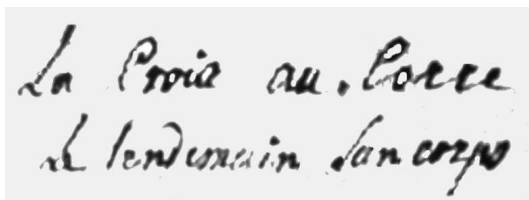 La Croix au. Corre
Le lendemain San corps